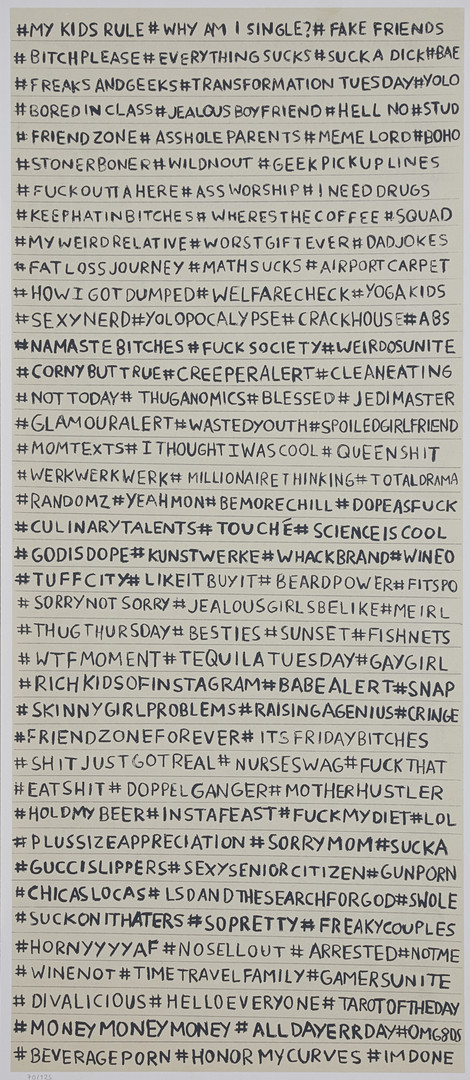 #MY KIDS RULE # WHY AM I SINGLE?# FAKE FRIENDS
# BITCHPLEASE # EVERYTHING SUCKS #SUCK A DICK#BAE
# FREAKS ANDGEEKS#TRANSFORMATION TUESDAY#YOLO
#BORED IN CLASS#JEALOUS BOYFRIEND #HELL NO#STUD
# FRIEND ZONE# ASSHOLE PARENTS # MEME LORD#BOHO
#STONERBONER#WILDNOUT #GEEK PICKUP LINES
# FUCKOUTTAHERE# ASS WORSHIP# I NEED DRUGS
#KEEPHATINBITCHES# WHERESTHECOFFEE #SQUAD
#MY WEIRD RELATIVE #WORSTGIFTEVER# DADJOKES
#FATLOSSJOURNEY #MATHSUCKS #AIRPORTCARPET
#HOW I GOT DUMPED# WELFARECHECK#YOGAKIDS
#SEXYNERD#YOLOPOCALYPSE# CRACKHOUSE#ABS
#NAMASTEBITCHES #FUCK SOCIETY#WEIRDOSUNITE
#CORNY BUT TRUE#CREEPERALERT#CLEANEATING
#NOT TODAY# THUGANOMICS#BLESSED# JEDIMASTER
#GLAMOURALERT#WASTEDYOUTH#SPOILEDGIRLFRIEND
#MOMTEXTS# I THOUGHT I WAS COOL # QUEENSHIT
#WERKWERKWERK# MILLIONAIRETHINKING#TOTALDRAMA
#RANDOMZ#YEAHMON#BEMORECHILL #DOPEASFUCK
#CULINARYTALENTS# TOUCHÉ# SCIENCE IS COOL
#GODISDOPE# KUNSTWERKE#WHACKBRAND#WINEO
#TUFFCITY# LIKEITBUYIT# BEARDPOWER#FITSPO
# SORRYNOT SORRY #JEALOUSGIRLSBELIKE#MEIRL
#THUGTHURSDAY# BESTIES #SUNSET #FISHNETS
# WTFMOMENT #TEQUILATUESDAY#GAYGIRL
#RICHKIDSOFINSTAGRAM#BABEALERT#SNAP
# SKINNYGIRLPROBLEMS #RAISINGAGENIUS#CRINGE
#FRIENDZONEFOREVER# ITSFRIDAYBITCHES
# SHIT JUST GOT REAL# NURSESWAG#FUCKTHAT
#EATSHIT# DOPPELGANGER#MOTHERHUSTLER
#HOLDMY BEER#INSTAFEAST#FUCKMYDIET#LOL
# PLUSSIZEAPPRECIATION #SORRYMOM#SUCKA
#GUCCISLIPPERS# SEXYSENIORCITIZEN#GUNPORN
#CHICASLOCAS# LSD AND THESEARCHFORGOD#SWOLE
#SUCKONITHATERS #SOPRETTY# FREAKYCOUPLES
#HORNYYYYAF #NOSELLOUT # ARRESTED#NOTME
# WINENOT #TIMETRAVELFAMILY#GAMERSUNITE
# DIVALICIOUS# HELLOEVERYONE# TAROTOFTHEDAY
#MONEYMONEYMONEY # ALLDAYERRDAY#OMG80S
#BEVERAGEPORN #HONOR MYCURVES #IMDONE